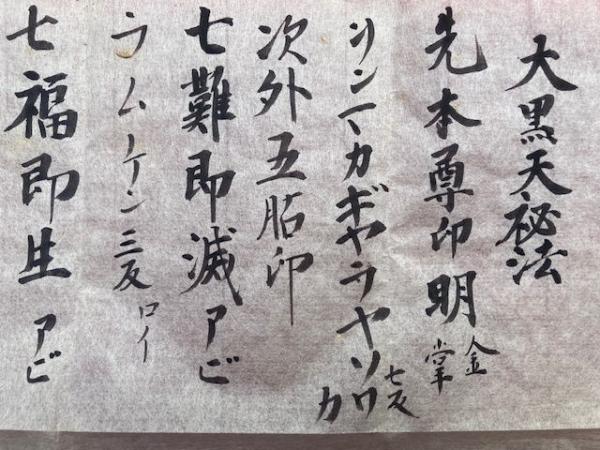 大黒天祕法
先本尊印明 金掌
ヲンマカギヤラヤソワカ 七反
次外五股印
七難即滅アビ
ラムケン三反 ロイ
七福即生 アビ